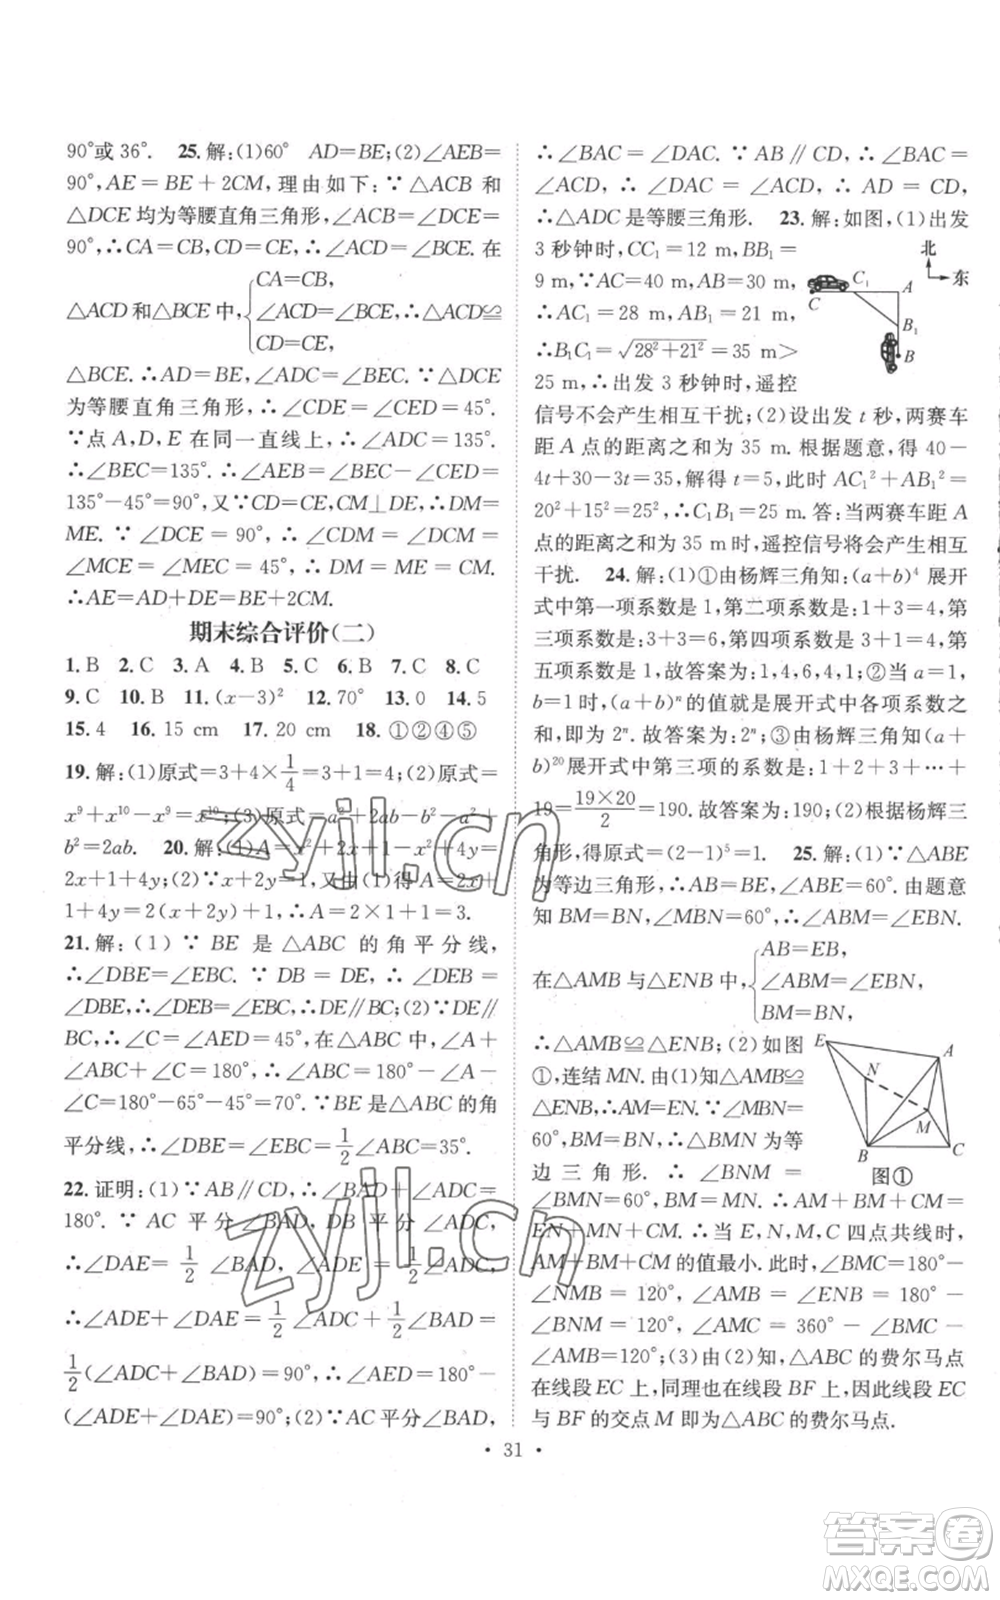 90°或 36°. 25.解:(1)60° AD=BE;(2)∠AEB=
90°,AE=BE+2CM,理由如下:∵△ACB 和
△DCE 均为等腰直角三角形,∠ACB=∠DCE=
90°,∴CA=CB,CD=CE,∴∠ACD=∠BCE.在
△ACD和△BCE中,{CA=CB,
∠ACD=∠BCE,∴△ACD≌
CD=CE,
△BCE.∴AD=BE,∠ADC=∠BEC.∵△DCE
为等腰直角三角形,∴∠CDE=∠CED=45°.
∵点A,D,E在同一直线上,∴∠ADC=135°.
∴∠BEC=135°.∴∠AEB=∠BEC-∠CED=
135°-45°=90°,又∵CD=CE,CM⊥DE,∴DM=
ME.∵∠DCE=90°,∴∠CDM=∠DCM=
∠MCE=∠MEC=45°.∴DM=ME=CM.
∴AE=AD+DE=BE+2CM.
期末综合评价(二)
1.B 2.C 3.A 4.B 5.C 6.B 7.C 8.C
9.C 10.B 11.(x-3)² 12.70° 13.0 14.5
15.4 16.15 cm 17.20 cm 18.①②④⑤
19.解:(1)原式=3+4×1/4=3+1=4;(2)原式=
x⁹+x¹⁰-x⁹=x¹⁰;(3)原式=a²+2ab-b²-a²+
b²=2ab. 20.解:(1)A=x²+2x+1-x²+4y=
2x+1+4y;(2)∵x+2y=1,由(1)得A=2x+
1+4y=2(x+2y)+1,∴A=2×1+1=3.
21.解:(1)∵BE是△ABC的角平分线,
∴∠DBE=∠EBC.∵DB=DE,∴∠DEB=
∠DBE,∴∠DEB=∠EBC,∴DE∥BC;(2)∵DE∥
BC,∴∠C=∠AED=45°,在△ABC中,∠A+
∠ABC+∠C=180°,∴∠ABC=180°-∠A-
∠C=180°-65°-45°=70°.∵BE是△ABC的角
平分线,∴∠DBE=∠EBC=1/2∠ABC=35°.
22.证明:(1)∵AB∥CD,∴∠BAD+∠ADC=
180°.∵AC平分∠BAD,DB平分∠ADC,
∴∠DAE=1/2∠BAD,∠ADE=1/2∠ADC,
∴∠ADE+∠DAE=1/2∠ADC+1/2∠BAD=
1/2(∠ADC+∠BAD)=90°,∴∠AED=180°-
(∠ADE+∠DAE)=90°;(2)∵AC平分∠BAD,
∴∠BAC=∠DAC.∵AB∥CD,∴∠BAC=
∠DCA.∴∠DAC=∠DCA,∴AD=CD,
∴△ADC是等腰三角形. 23.解:如图,(1)出发
3秒钟时,CC₁=12 m,BB₁=
9 m,∵AC=40 m,AB=30 m,
∴AC₁=28 m,AB₁=21 m,
∴B₁C₁=√(28²+21²)=35 m>
25 m,∴出发3秒钟时,遥控
信号不会产生相互干扰;(2)设出发t秒,两赛车
距A点的距离之和为35 m.根据题意,得40-
4t+30-3t=35,解得t=5,此时AC₁²+AB₁²=
20²+15²=25²,∴C₁B₁=25 m.答:当两赛车距A
点的距离之和为35 m时,遥控信号将会产生相互
干扰. 24.解:(1)①由杨辉三角知:(a+b)⁴展开
式中第一项系数是1,第二项系数是:1+3=4,第
三项系数是:3+3=6,第四项系数是:3+1=4,第
五项系数是1,故答案为:1,4,6,4,1;②当a=1,
b=1时,(a+b)ⁿ的值就是展开式中各项系数之
和,即为2ⁿ.故答案为:2ⁿ;③由杨辉三角知(a+
b)²⁰展开式中第三项的系数是:1+2+3+…+
19=19×20/2=190.故答案为:190;(2)根据杨辉三
角形,得原式=(2-1)⁵=1. 25.解:(1)∵△ABE
为等边三角形,∴AB=BE,∠ABE=60°.由题意
知BM=BN,∠MBN=60°,∴∠ABM=∠EBN.
在△AMB与△ENB中,{AB=EB,
∠ABM=∠EBN,
BM=BN,
∴△AMB≌△ENB;(2)如图
①,连结MN.由(1)知△AMB≌
△ENB,∴AM=EN.∵∠MBN=
60°,BM=BN,∴△BMN为等
边三角形.∴∠BNM=
∠BMN=60°,BM=MN.∴AM+BM+CM=
EN+MN+CM.∴当E,N,M,C四点共线时,
AM+BM+CM的值最小.此时,∠BMC=180°-
∠NMB=120°,∠AMB=∠ENB=180°-
∠BNM=120°,∠AMC=360°-∠BMC-
∠AMB=120°;(3)由(2)知,△ABC的费尔马点
在线段EC上,同理也在线段BF上,因此线段EC
与BF的交点M即为△ABC的费尔马点.
北
东
C C₁ A
B₁
B
E A
N
M
B C
图①
• 31 •
zyjl.cn
zyjl.cn
答案圈
MXQE.COM